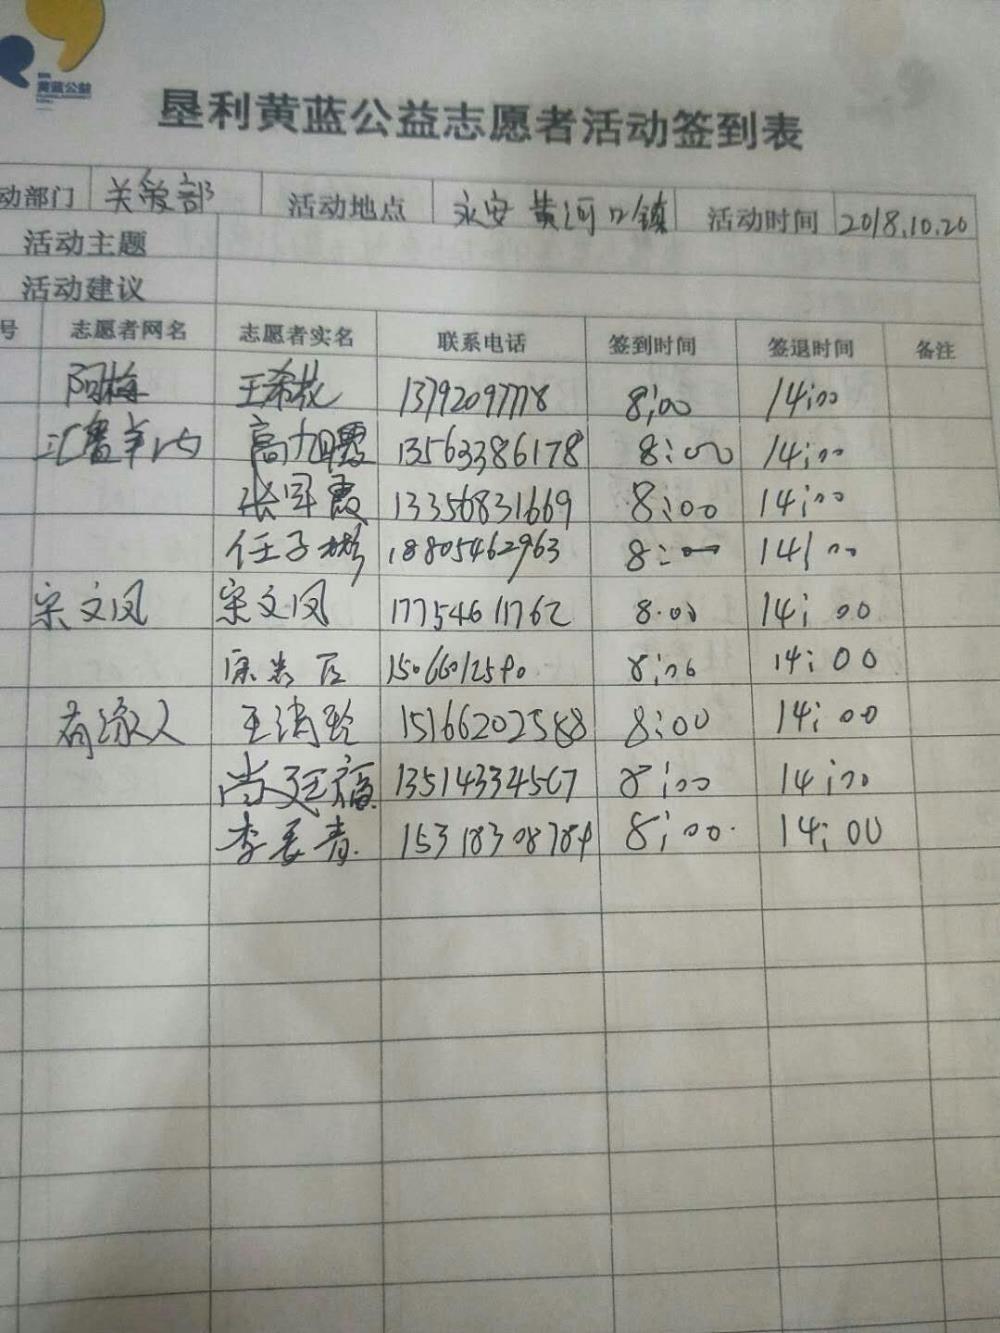 黄蓝公益
垦利黄蓝公益志愿者活动签到表
动部门 关爱部 活动地点 永安 黄河口镇 活动时间 2018.10.20
活动主题
活动建议
号 志愿者网名 志愿者实名 联系电话 签到时间 签退时间 备注
阿梅 13792097778 8:00 14:00
13563386178 8:00 14:00
张军霞 13356831669 8:00 14:00
任子彬 18805462963 8:00 14:00
宋文凤 宋文凤 17754611762 8:00 14:00
8:00 14:00
有缘人 15166202588 8:00 14:00
尚廷福 13514334567 8:00 14:00
李长青 15318308784 8:00 14:00